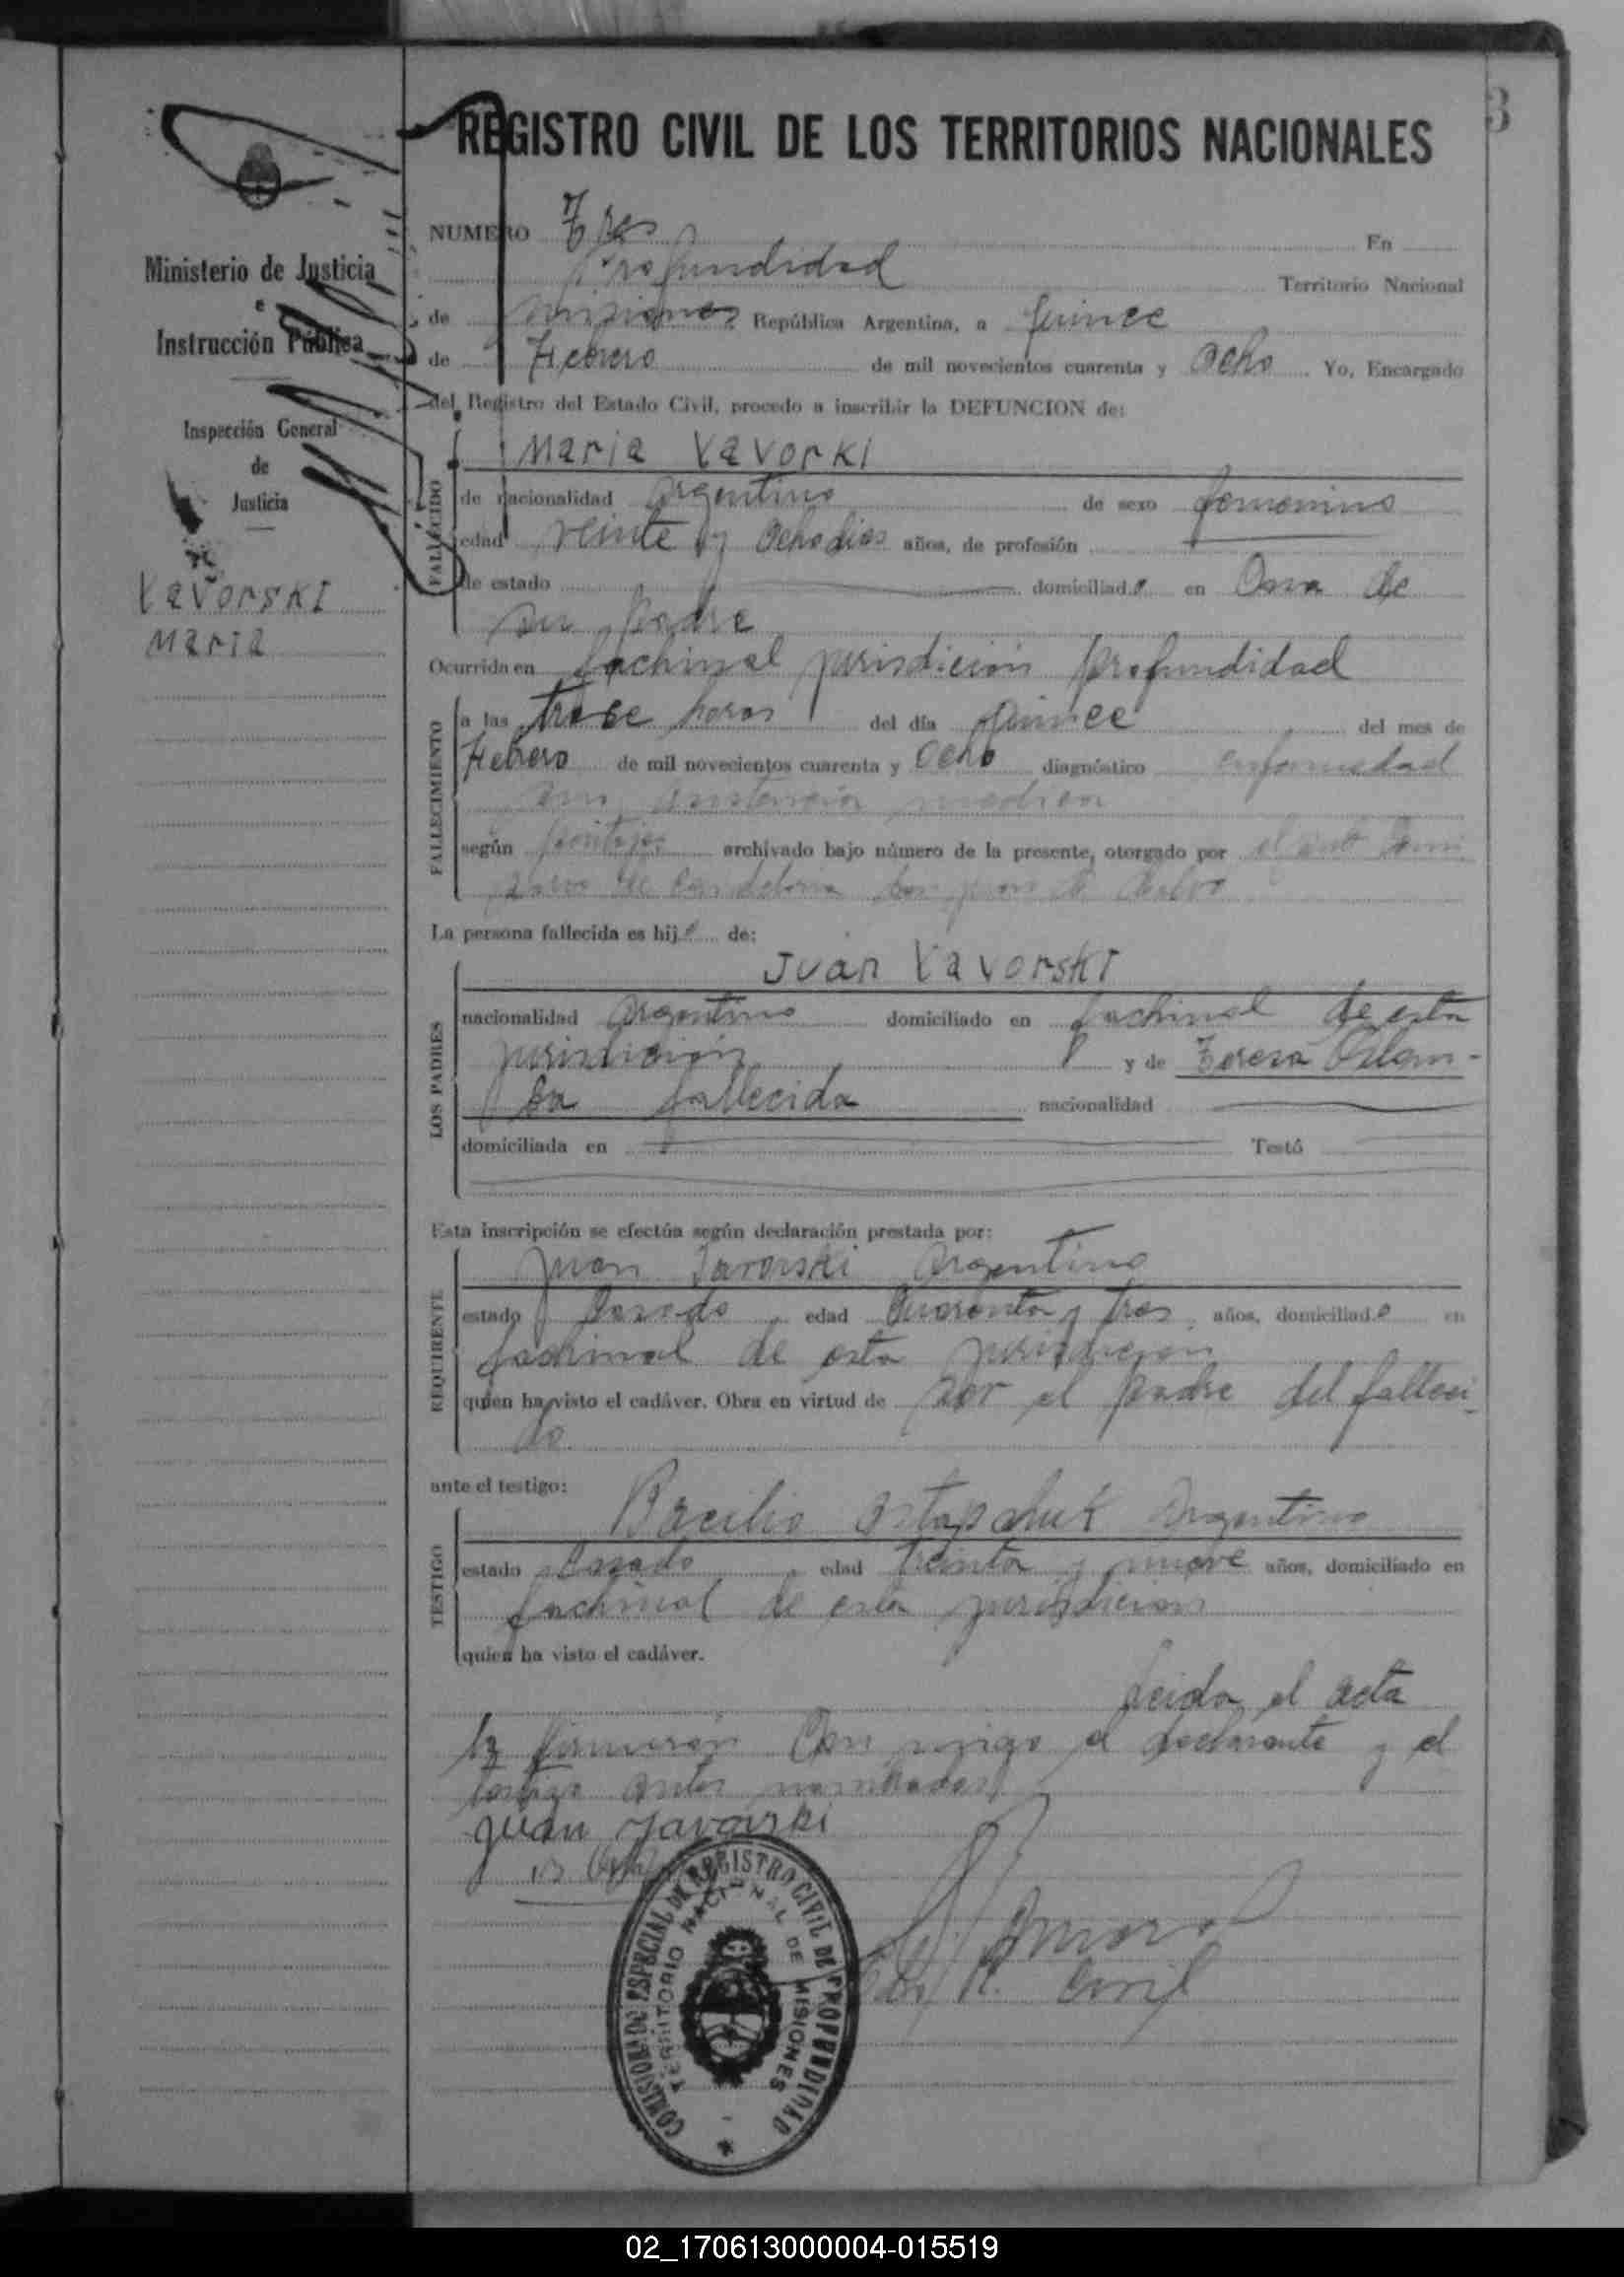 3
REGISTRO CIVIL DE LOS TERRITORIOS NACIONALES
Ministerio de Justicia
e
Instrucción Pública
Inspección General
de
Justicia
YAVORSKI
MARIA
NUMERO Tres En
Profundidad Territorio Nacional
de Misiones República Argentina, a quince
de Febrero de mil novecientos cuarenta y ocho Yo, Encargado
del Registro del Estado Civil, procedo a inscribir la DEFUNCION de:
FALLECIDO
Maria YavorKI
de nacionalidad Argentina de sexo femenino
edad veinte y ocho dias años, de profesión
de estado domiciliad o en Casa de
su padre
Ocurrida en fachinal jurisdicion profundidad
FALLECIMIENTO
a las trece horas del día quince del mes de
Febrero de mil novecientos cuarenta y ocho diagnóstico enfermedad
sin asistencia medica
según archivado bajo número de la presente, otorgado por el
de Candelaria
La persona fallecida es hij de:
LOS PADRES
Juan YavorskI
nacionalidad Argentino domiciliado en fachinal de esta
jurisdicion y de Teresa
fallecida nacionalidad
domiciliada en Testó
Esta inscripción se efectúa según declaración prestada por:
REQUIRENTE
Juan Iavorski Argentino
estado Casado edad Cuarenta y tres años, domiciliad o en
fachinal de esta jurisdicion
quien ha visto el cadáver. Obra en virtud de ser el padre del falleci
do
ante el testigo:
TESTIGO
Bacilio Ostapchuk Argentino
estado Casado edad treinta y nueve años, domiciliado en
fachinal de esta jurisdicion
quien ha visto el cadáver.
leida el acta
la firmaron Con migo el declarante y el
testigo antes nombrados
Juan Yavorski
R. Civil
COMISIONADO ESPECIAL DE REGISTRO CIVIL DE PROFUNDIDAD
TERRITORIO NACIONAL DE MISIONES
02_170613000004-015519